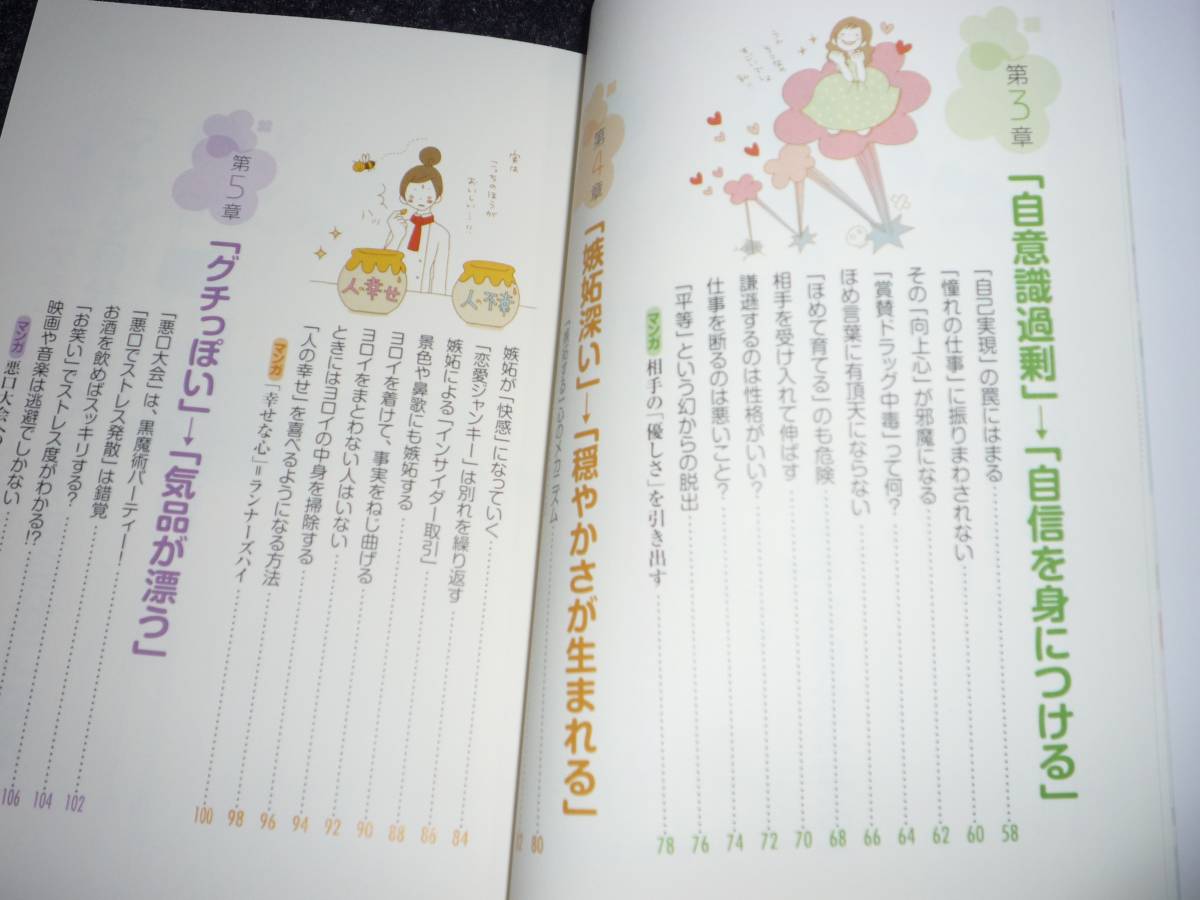 第3章
「自意識過剰」→「自信を身につける」
「自己実現」の罠にはまる 58
「憧れの仕事」に振りまわされない 60
その「向上心」が邪魔になる 62
「賞賛ドラッグ中毒」って何? 64
ほめ言葉に有頂天にならない 66
「ほめて育てる」のも危険 68
相手を受け入れて伸ばす 70
謙遜するのは性格がいい? 72
仕事を断るのは悪いこと? 74
「平等」という幻からの脱出 76
マンガ 相手の「優しさ」を引き出す 78
第4章
「嫉妬深い」→「穏やかさが生まれる」
心のメカニズム 80
嫉妬が「快感」になっていく 84
「恋愛ジャンキー」は別れを繰り返す 86
嫉妬による「インサイダー取引」 88
景色や鼻歌にも嫉妬する 90
ヨロイを着けて、事実をねじ曲げる 92
ヨロイをまとわない人はいない 94
ときにはヨロイの中身を掃除する 96
「人の幸せ」を喜べるようになる方法 98
マンガ 「幸せな心」=ランナーズハイ 100
実は
こっちのほうが
おいしい…!!
人の幸せ
人の不幸
第5章
「グチっぽい」→「気品が漂う」
「悪口大会」は、黒魔術パーティー! 102
「悪口でストレス発散」は錯覚 104
お酒を飲めばスッキリする? 106
「お笑い」でストレス度がわかる!?
映画や音楽は逃避でしかない
マンガ 悪口大会